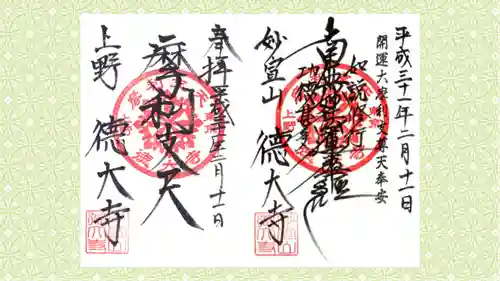 平成三十一年二月十一日
開運大摩利支尊天奉安
如説修行
南無妙法蓮華経
功徳甚多
妙宣山
徳大寺
奉拝 平成三十一年二月十一日
摩利支天
上野 徳大寺